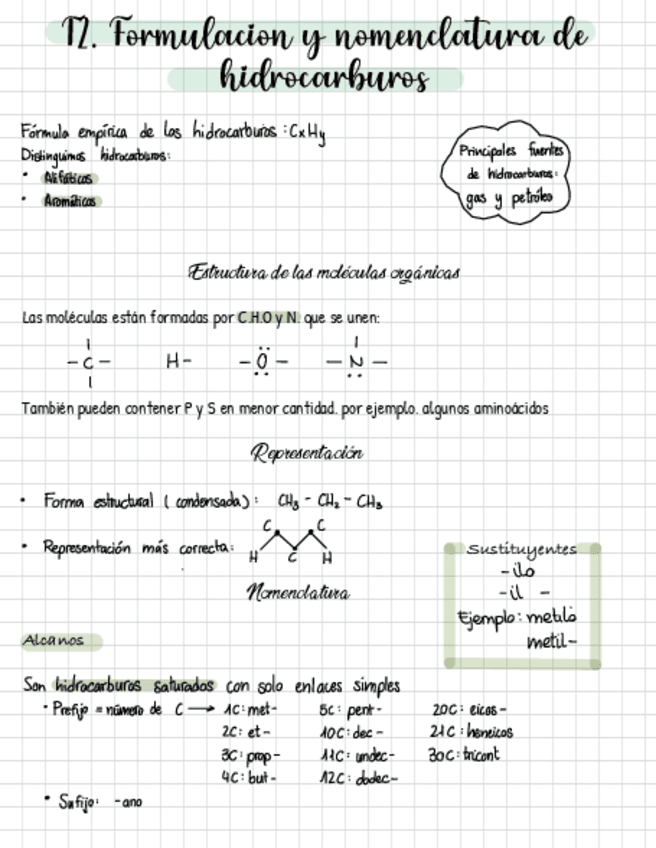 T2. Formulacion y nomenclatura de
hidrocarburos
Fórmula empírica de los hidrocarburos : CxHy
Distinguimos hidrocarburos:
• Alifáticos
• Aromáticos
Principales fuentes
de hidrocarburos:
gas y petróleo
Estructura de las moléculas orgánicas
Las moléculas están formadas por C.H.O y N. que se unen:
– C – H – – O – – N –
También pueden contener P y S en menor cantidad. por ejemplo. algunos aminoácidos
Representación
• Forma estructural ( condensada) : CH3 - CH2 - CH3
• Representación más correcta:
C C
H C H
Sustituyentes
- ilo
- il -
Ejemplo: metilo
metil-
Nomenclatura
Alcanos
Son hidrocarburos saturados con solo enlaces simples
• Prefijo = número de C → 1C: met- 5C: pent- 20C: eicos-
2C: et- 10C: dec- 21C: heneicos
3C: prop- 11C: undec- 30C: tricont
4C: but- 12C: dodec-
• Sufijo: -ano